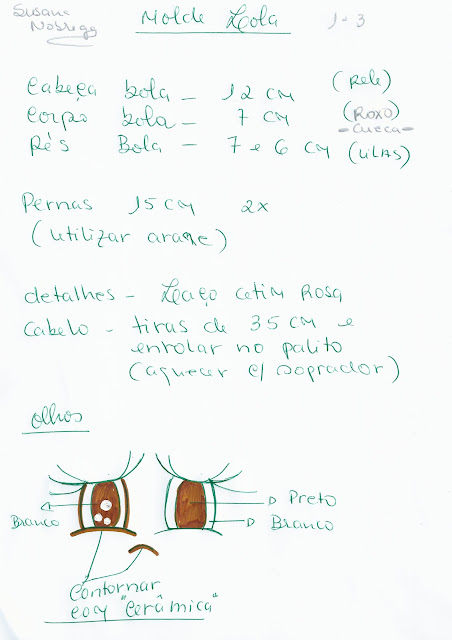 Susana
Nobrega
Molde Lola
1-3
Cabeça bola - 12 CM (Pele)
Corpo bola - 7 CM (Roxo)
-Cueca-
Pés Bola - 7 e 6 CM (LiLAS)
Pernas 15 CM 2x
(utilizar arame)
detalhes - Laço cetim Rosa
Cabelo - tiras de 35 CM e
enrolar no palito
(aquecer c/ soprador)
olhos
Preto
Branco
Branco
Contornar
com "Cerâmica"